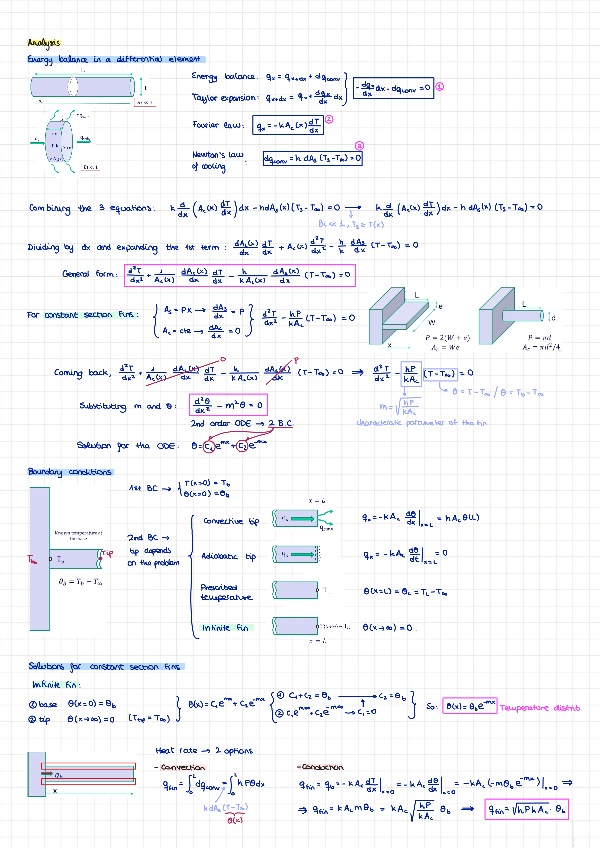 Analysis
Energy balance in a differential element
Energy balance: qx = qx+dx + dqconv
-dqx/dx dx - dqconv = 0 ①
Taylor expansion: qx+dx = qx + dqx/dx dx
Fourier law: qx = -kAc(x) dT/dx ②
Newton's law of cooling: dqconv = h dAs (Ts-T∞) = 0 ③
Bi << 1
Bi << 1
Combining the 3 equations: k d/dx (Ac(x) dT/dx) dx - h dAs(x)(Ts-T∞) = 0 → k d/dx (Ac(x) dT/dx) dx - h dAs(x)(Ts-T∞) = 0
Bi << 1, Ts ≅ T(x)
Dividing by dx and expanding the 1st term: dAc(x)/dx dT/dx + Ac(x) d²T/dx² - h/k dAs/dx (T-T∞) = 0
General form: d²T/dx² + 1/Ac(x) dAc(x)/dx dT/dx - h/kAc(x) dAs(x)/dx (T-T∞) = 0
For constant section fins: { As = Px → dAs/dx = P
Ac = cte → dAc/dx = 0 } d²T/dx² - hP/kAc (T-T∞) = 0
L
e
W
x
P = 2(W + e)
Ac = We
L
d
P = πd
Ac = πd²/4
Coming back, d²T/dx² + 1/Ac(x) dAc(x)/dx dT/dx - h/kAc(x) dAs(x)/dx (T-T∞) = 0 ⇒ d²T/dx² - hP/kAc (T-T∞) = 0
0
P
θ = T-T∞ / θb = Tb-T∞
m = √hP/kAc
characteristic parameter of the fin
Substituting m and θ: d²θ/dx² - m²θ = 0
2nd order ODE → 2 B.C.
Solution for the ODE: θ = C1 e^mx + C2 e^-mx
Boundary conditions
1st BC → { T(x=0) = Tb
θ(x=0) = θb
Known temperature at the base
Tb
Tip
θb = Tb - T∞
2nd BC →
tip depends
on the problem
x = L
Convective tip
qx = -kAc dθ/dx |x=L = hAcθ(L)
Adiabatic tip
qx = -kAc dθ/dt |x=L = 0
Prescribed temperature
θ(x=L) = θL = TL-T∞
Infinite fin
θ(x→∞) = 0
x = L
Solutions for constant section fins
Infinite fin:
① base θ(x=0) = θb
② tip θ(x→∞) = 0 (Ttip = T∞)
θ(x) = C1 e^mx + C2 e^-mx
① C1 + C2 = θb → C2 = θb
② C1 e^m∞ + C2 e^-m∞ → C1 = 0
So: θ(x) = θb e^-mx Temperature distrib
Heat rate → 2 options
- Convection
qfin = ∫0^L dqconv = ∫0^L hPθdx
h dAs (T-T∞)
θ(x)
- Conduction
qfin = qb = -kAc dT/dx |x=0 = -kAc dθ/dx |x=0 = -kAc (-mθb e^-mx)|x=0 ⇒
⇒ qfin = kAc mθb = kAc √hP/kAc θb ⇒ qfin = √hPkAc · θb
qb
x